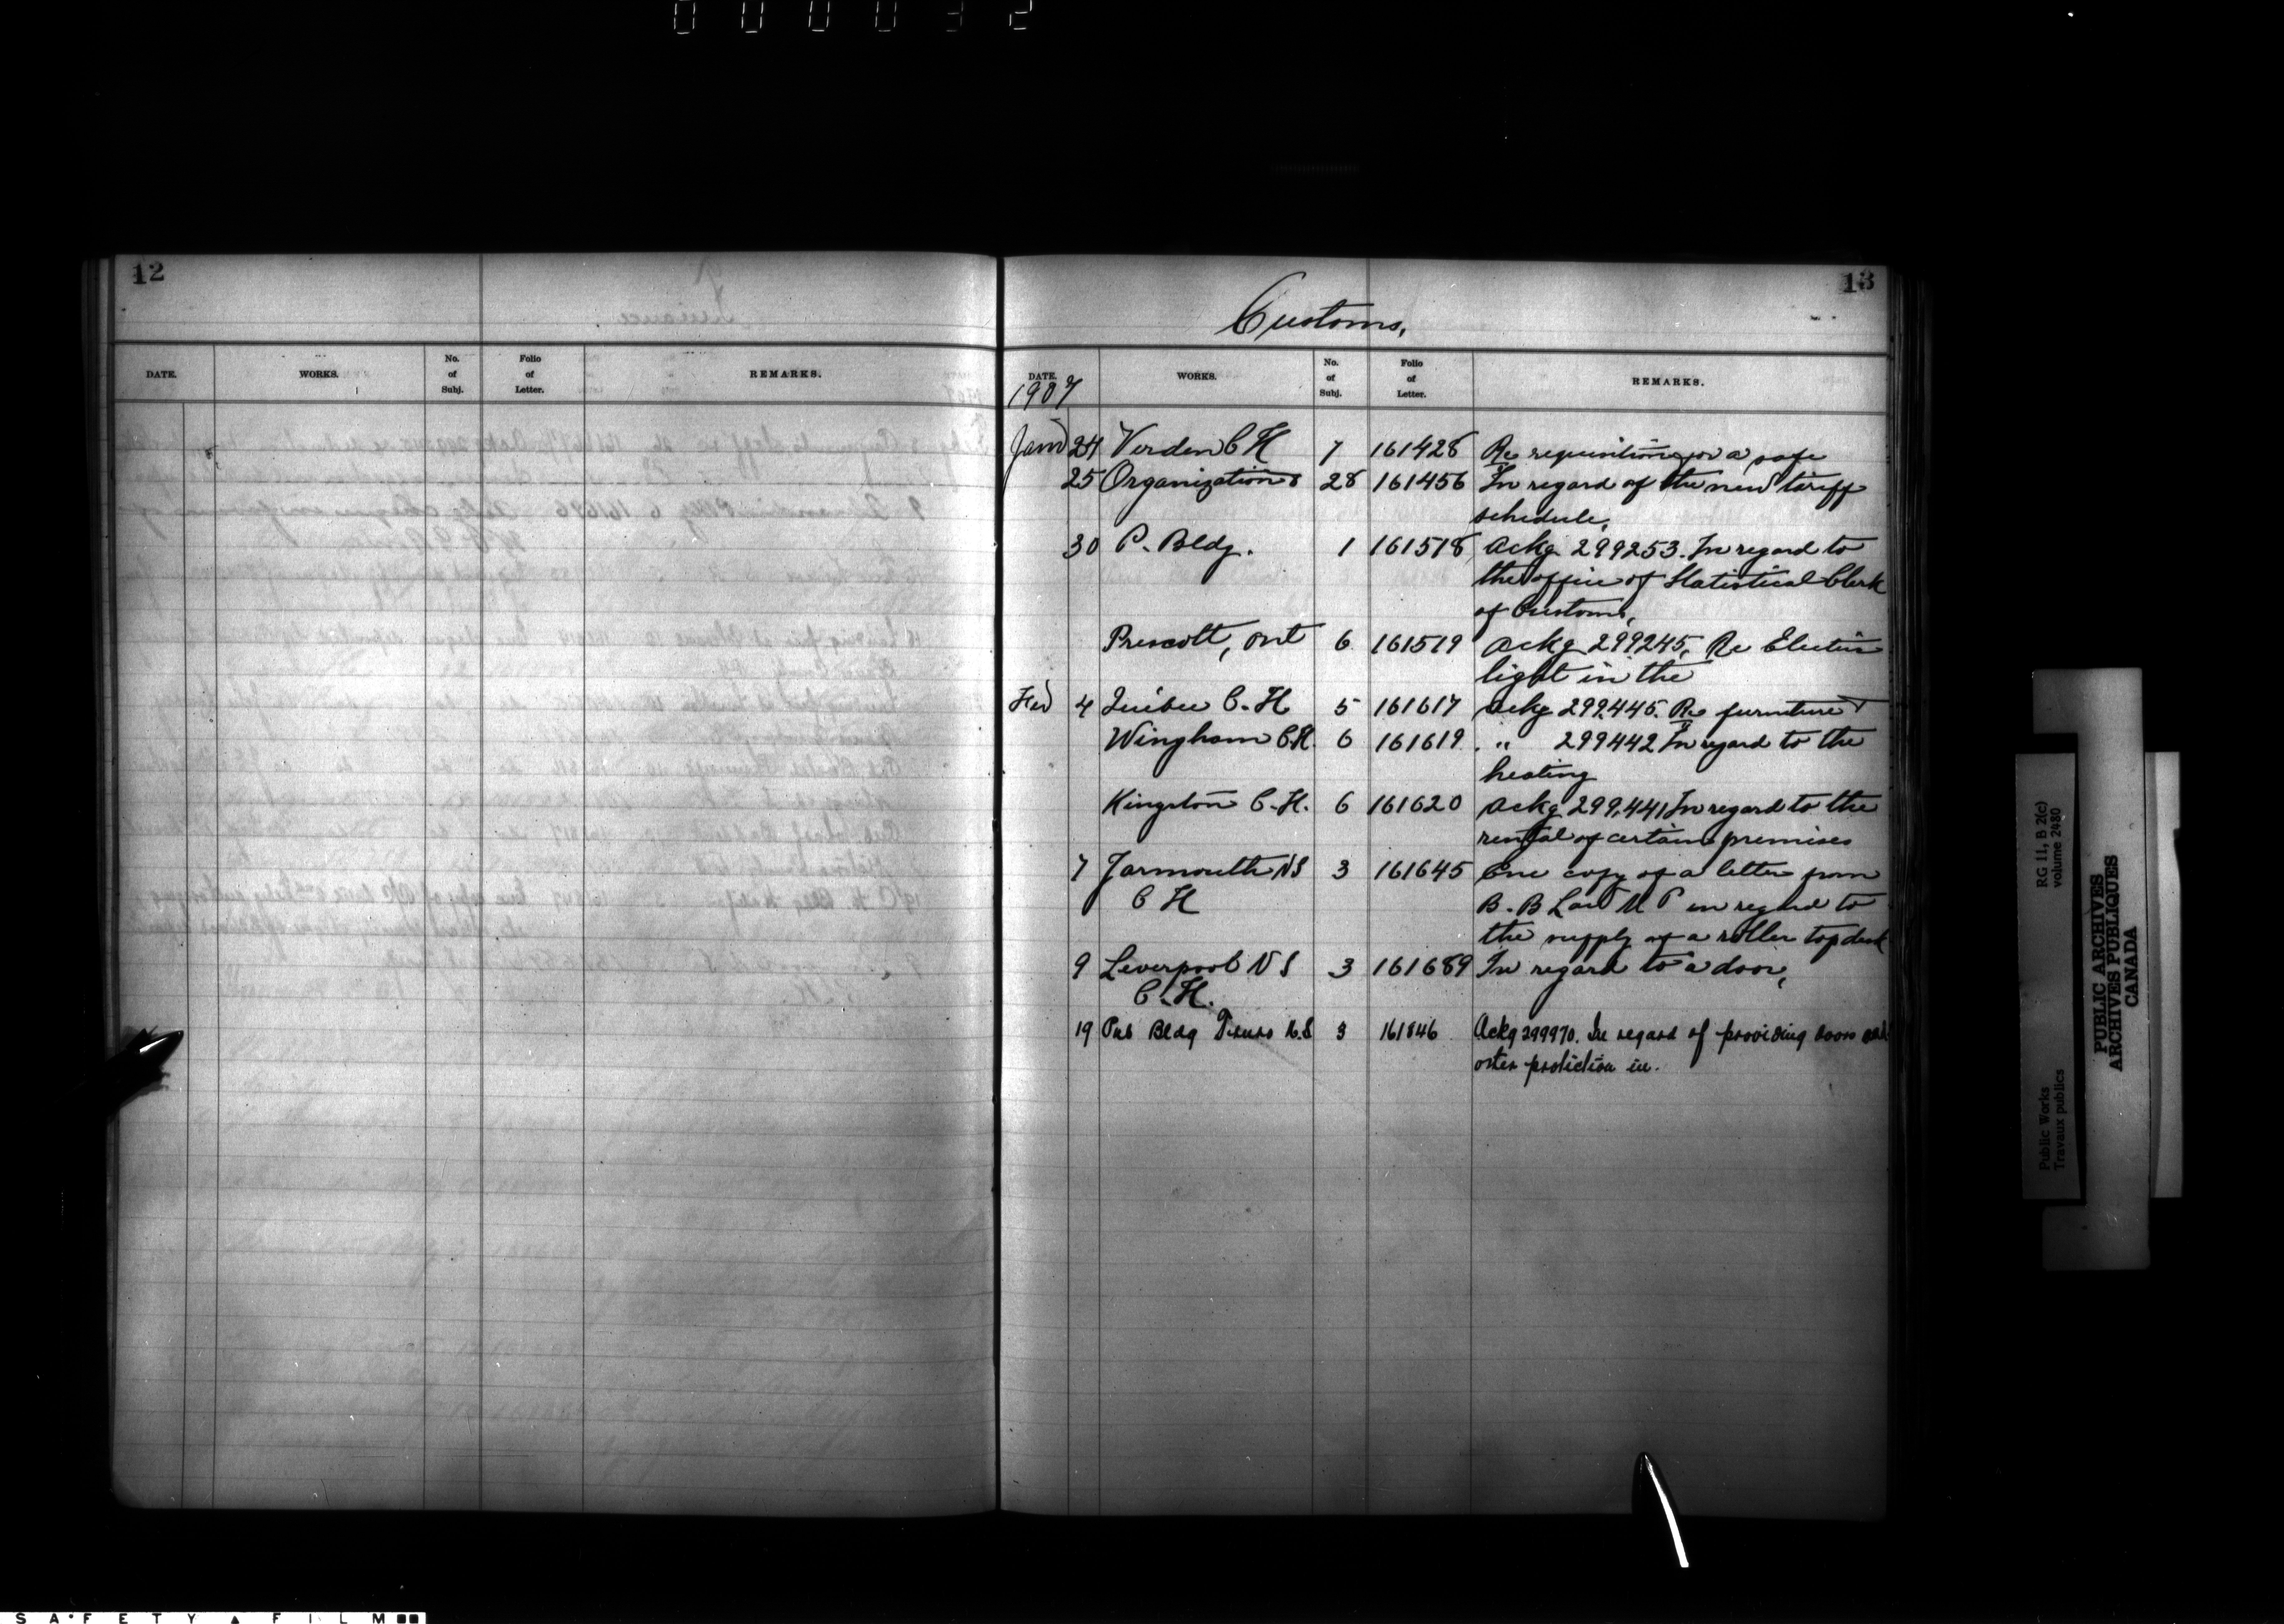 000032
12
DATE. WORKS. No. of Subj. Folio of Letter. REMARKS.
13
Customs,
DATE. WORKS. No. of Subj. Folio of Letter. REMARKS.
1907
Jan 24 Virden C H 7 161428 Re requisition for a safe
25 Organization 28 161456 In regard of the new tariff
schedule,
30 P. Bldg. 1 161518 Ackg 299253. In regard to
the office of Statistical Clerk
of Customs,
Prescott, Ont 6 161519 Ackg 299245, Re Electric
light in the
Feb 4 Quebec C. H 5 161617 Ackg 299,445. Re furniture
Wingham C.H. 6 161619 " 299442 In regard to the
heating
Kingston C. H. 6 161620 Ackg 299,441 In regard to the
rental of certain premises
7 Yarmouth NS 3 161645 Enc copy of a letter from
C H B. B Law M P in regard to
the supply of a roller top desk
9 Liverpool N S 3 161689 In regard to a door,
C. H.
19 Pub Bldg Truro N.S 3 161846 Ackg 299970. In regard of providing doors and
other protection in.
RG 11, B 2(c)
volume 2480
Public Works
Travaux publics
PUBLIC ARCHIVES
ARCHIVES PUBLIQUES
CANADA
SAFETY FILM